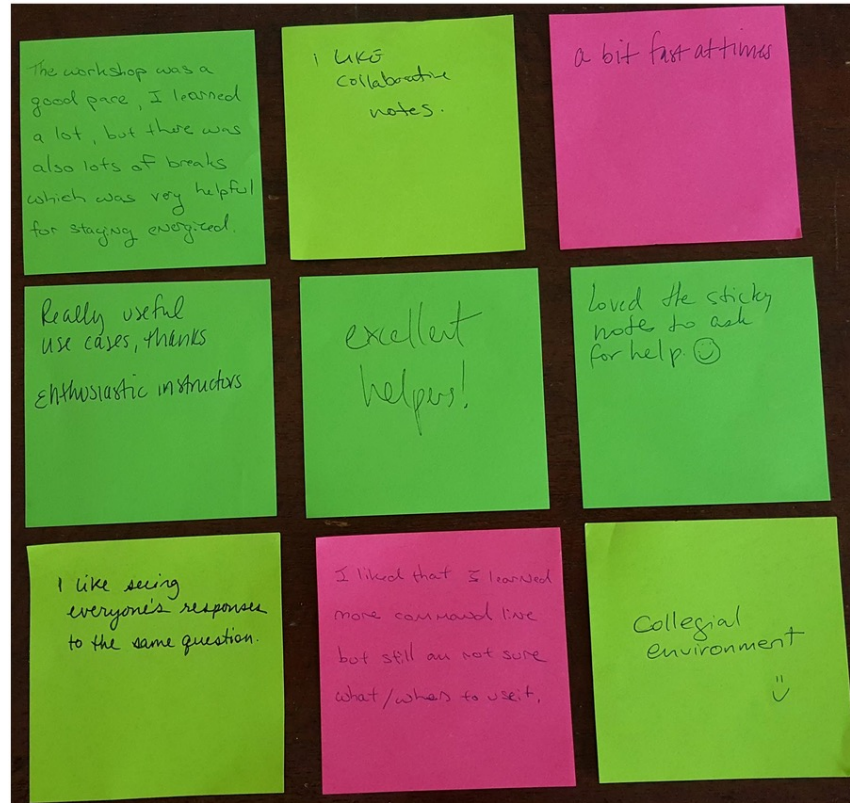 The workshop was a
good pace, I learned
a lot, but there was
also lots of breaks
which was very helpful
for staying energized.
I LIKE
collaborative
notes.
a bit fast at times
Really useful
use cases, thanks
enthusiastic instructors
excellent
helpers!
Loved the sticky
notes to ask
for help. ☺
I like seeing
everyone's responses
to the same question.
I liked that I learned
more command line
but still am not sure
what/when to use it.
Collegial
environment